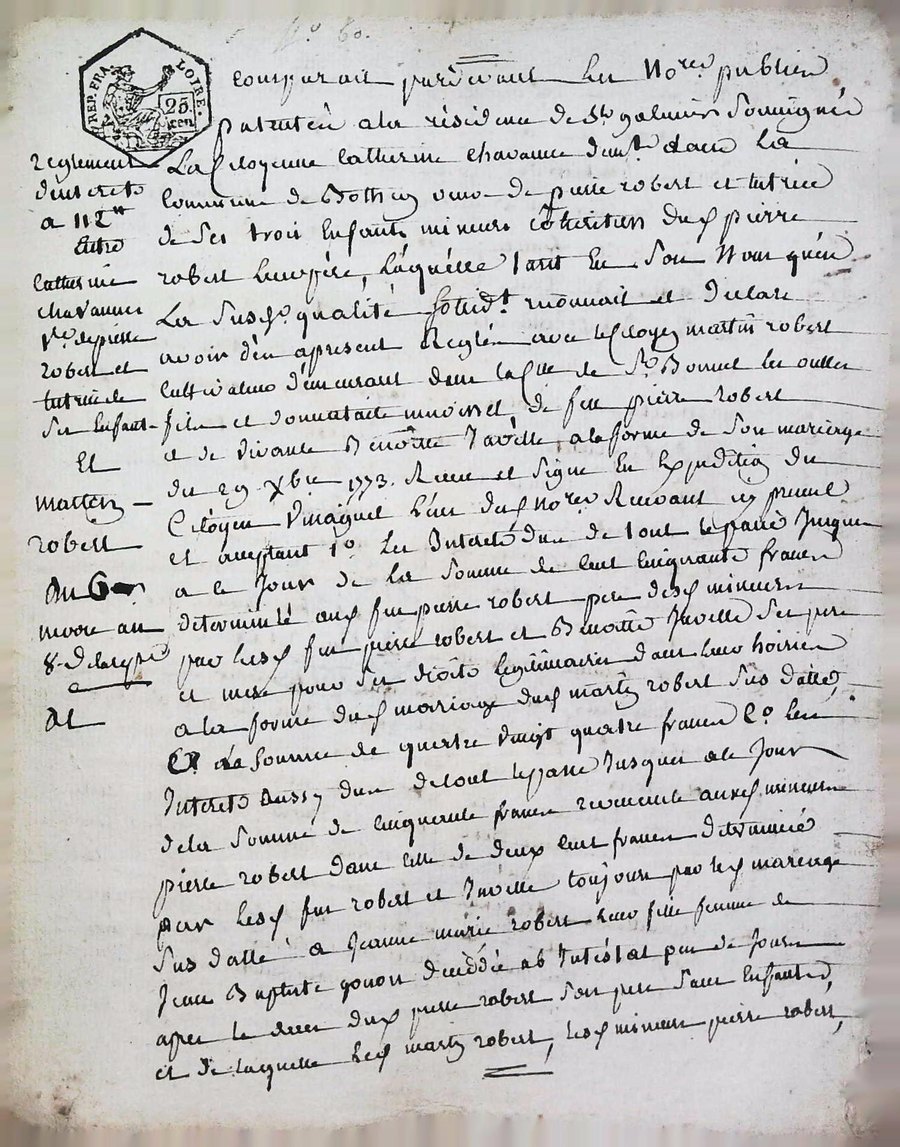 N° 60.
REP. FRA.
LOIRE.
25. cen
comparait pardevant les No.res publics
patentés a la résidence de St galmier soussignés
La Citoyenne Catherine Chavanne demt dans La
Commune de Bothéon veuve de pierre robert et tutrice
de Ses trois Enfants mineurs cohéritiers dud pierre
robert Leur père, Laquelle tant En Son Nom qu'en
La Susd. qualité Solidt. reconnait et Déclare
avoir d'en apresent Reglé avec le Citoyen martin robert
Cultivateur demeurant dans la Cne de St Bonnet les oulles
fils et donnataire universel de feu pierre robert
et de vivante Benoitte Javelle, a la forme de Son mariage
du 29 Xbre 1773. Recu et Signé En Expedition du
Citoyen Vinaignet L'un desd No.res Recevant icy present
et acceptant 1° Les Interets dus de tout le passé Jusques
a ce Jour de La Somme de Cent Cinquante francs
determinés aud feu pierre robert pere desd mineurs
par lesd feu pierre robert et Benoitte Javelle Ses pere
et mere pour Ses droits legitimaires dans leurs hoiries
a la forme dud mariage dud martin robert Sus datté,
Et a la Somme de quatre vingt quatre francs 2° Les
Interets Aussy dus de tout le passé Jusques a ce Jour
de la Somme de Cinquante francs revenante auxd mineurs
pierre robert dans Celle de deux Cent francs déterminée
par lesd feu robert et Javelle toujours par led mariage
Sus datté a Jeanne marie robert leur fille femme de
Jean Baptiste gonon décédée ab Intestat peu de Jours
apres le déces dud pierre robert Son pere Sans Enfants,
et de laquelle led martin robert, lesd mineurs pierre robert,
Reglement
d'interets
a 112tt
Entre
Catherine
chavanne
Ve. de pierre
robert et
tutrice de
Ses Enfants
Et
martin
robert
Du 6
nivose an
8. de la rep.